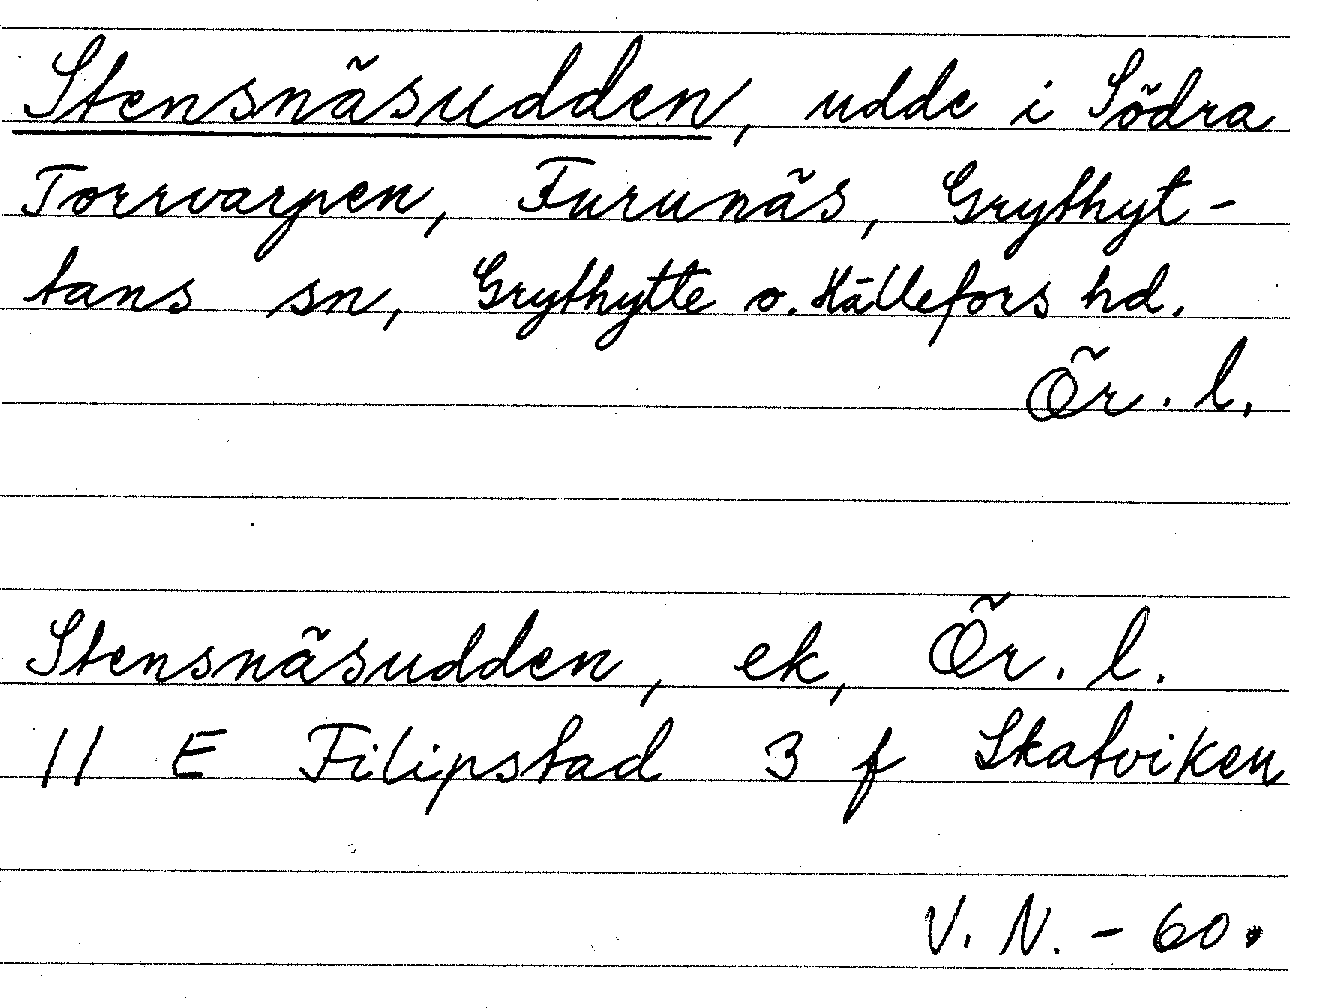 Stensnäsudden, udde i Södra
Torrvarpen, Furunäs, Grythyt-
tans sn, Grythytte o. Hällefors hd.
Ör. l.
Stensnäsudden, ek, Ör. l.
11 E Filipstad 3 f Skatviken
V. N. - 60.